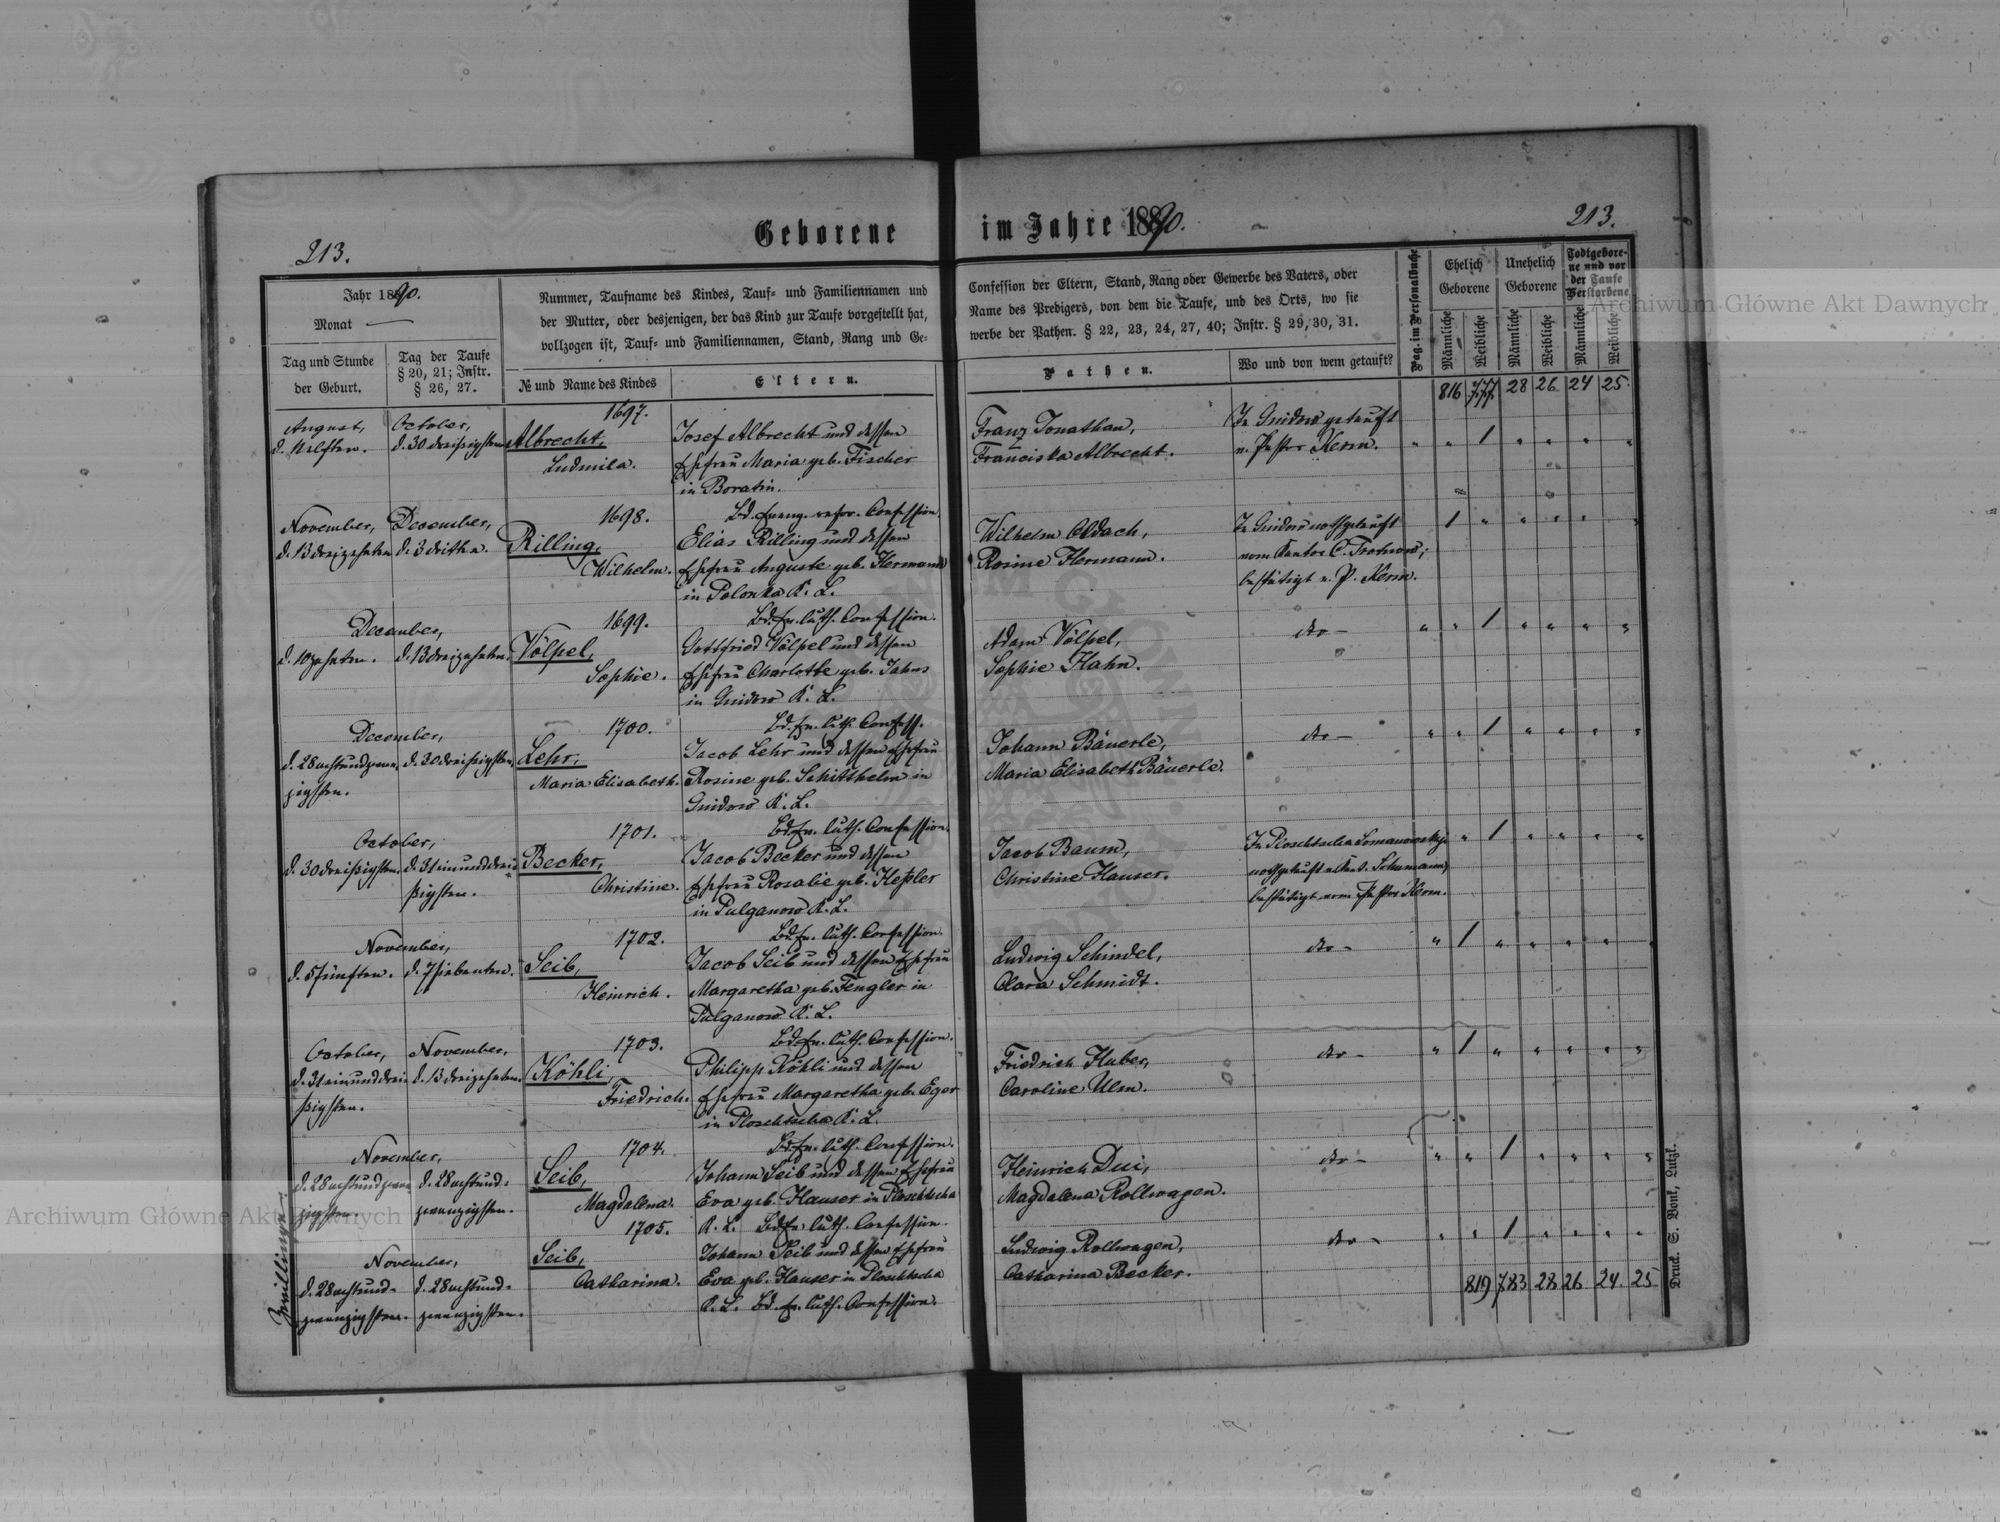 213.
Geborene
Jahr 1890.
Monat
Tag und Stunde
der Geburt.
Tag der Taufe
§ 20, 21; Instr.
§ 26, 27.
Nummer, Taufname des Kindes, Tauf- und Familiennamen und
der Mutter, oder desjenigen, der das Kind zur Taufe vorgestellt hat,
vollzogen ist, Tauf- und Familiennamen, Stand, Rang und Ge-
№ und Name des Kindes
Eltern.
im Jahre 1890.
213.
Confession der Eltern, Stand, Rang oder Gewerbe des Vaters, oder
Name des Predigers, von dem die Taufe, und des Orts, wo sie
werbe der Pathen. § 22, 23, 24, 27, 40; Instr. § 29, 30, 31.
Pathen.
Wo und von wem getauft?
Pag. im Personalbuche
Ehelich
Geborene
Unehelich
Geborene
Todtgebore-
ne und vor
der Taufe
Verstorbene
Männliche
Weibliche
Männliche
Weibliche
Männliche
Weibliche
816 777 28 26 24 25
August,
d. 11elften.
October,
d. 30 dreißigsten
1697.
Albrecht,
Ludmila.
Josef Albrecht und dessen
Ehefrau Maria geb. Fischer
in Boratin.
Franz Jonathan,
Franciska Albrecht.
In Gnidow getauft
v. Pastor Kerm.
November,
d. 13 dreizehnten
December,
d. 3 dritten.
1698.
Rilling,
Wilhelm.
Bd. Evang. refor. Confession.
Elias Rilling und dessen
Ehefrau Auguste geb. Hermann
in Polonka K. L.
Wilhelm Oldach,
Rosine Hermann.
In Gnidow nothgetauft
vom Kantor C.
bestätigt v. P. Kerm.
December,
d. 10 zehnten.
d. 13 dreizehnten.
1699.
Völpel,
Sophie.
Bd. Ev. luth. Confession.
Gottfried Völpel und dessen
Ehefrau Charlotte geb. Jahns
in Gnidow K. L.
Adam Völpel,
Sophie Hahn.
dto –
December,
d. 28 achtundzwan
zigsten.
d. 30 dreißigsten
1700.
Lehr,
Maria Elisabeth.
Bd. Ev. luth. Confess.
Jacob Lehr und dessen Ehefrau
Rosine geb. Schitthelm in
Gnidow K. L.
Johann Bäuerle,
Maria Elisabeth Bäuerle.
dto –
October,
d. 30 dreißigsten.
d. 31 einunddrei
ßigsten.
1701.
Becker,
Christine.
Bd. Ev. luth. Confession.
Jacob Becker und dessen
Ehefrau Rosalie geb. Heßler
in Pulganow K. L.
Jacob Baum,
Christine Hauser.
In Ploschtscha
nothgetauft v. Kant. Schumann,
bestätigt vom Pastor Kerm.
November,
d. 5 fünften.
d. 7 siebenten.
1702.
Seib,
Heinrich.
Bd. Ev. luth. Confession.
Jacob Seib und dessen Ehefrau
Margaretha geb. Fengler in
Pulganow K. L.
Ludwig Schindel,
Clara Schmidt.
dto –
October,
d. 31 einunddrei
ßigsten.
November,
d. 13 dreizehnten.
1703.
Köhli,
Friedrich.
Bd. Ev. luth. Confession.
Philipp Köhli und dessen
Ehefrau Margaretha geb. Eger
in Ploschtscha K. L.
Friedrich Huber,
Caroline Ulm.
dto –
November,
d. 28 achtundzwan
zigsten.
d. 28 achtund-
zwanzigsten.
1704.
Seib,
Magdalena.
Bd. Ev. luth. Confession.
Johann Seib und dessen Ehefrau
Eva geb. Hauser in Ploschtscha
K. L. Bd. Ev. luth. Confession.
Heinrich Dui,
Magdalena Rollwagen.
dto –
Zwillinge.
November,
d. 28 achtund-
zwanzigsten.
d. 28 achtund-
zwanzigsten.
1705.
Seib,
Catharina.
Johann Seib und dessen Ehefrau
Eva geb. Hauser in Ploschtscha
K. L. Bd. Ev. luth. Confession.
Ludwig Rollwagen,
Catharina Becker.
dto –
819 783 28 26 24. 25
Druck. S. Bonk, Lutzk.
Archiwum Główne Akt Dawnych
Archiwum Główne Akt Dawnych